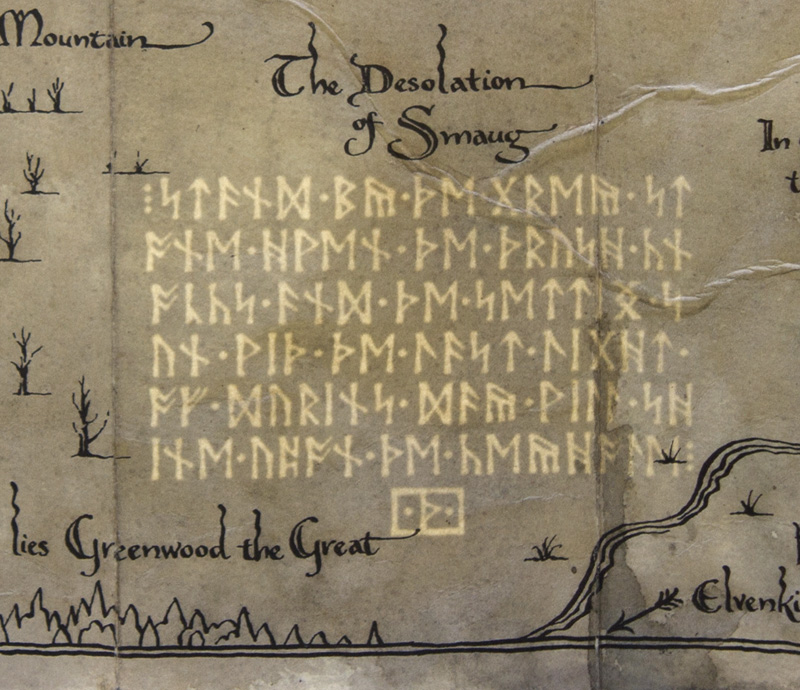 Mountain
The Desolation
of Smaug
In
t
⁝ᛋᛏᚪᚾᛞ·ᛒᚣ·ᚦᛖ·ᚷᚱᛖᚣ·ᛋᛏ
ᚩᚾᛖ·ᚻᚹᛖᚾ·ᚦᛖ·ᚦᚱᚢᛋᚻ·ᚳᚾ
ᚩᚳᚳᛋ·ᚪᚾᛞ·ᚦᛖ·ᛋᛖᛏᛏᛁᛝ·ᛋ
ᚢᚾ·ᚹᛁᚦ·ᚦᛖ·ᛚᚪᛋᛏ·ᛚᛁᚷᚻᛏ·
ᚩᚠ·ᛞᚢᚱᛁᚾᛋ·ᛞᚪᚣ·ᚹᛁᛚᛚ·ᛋᚻ
ᛁᚾᛖ·ᚢᛈᚩᚾ·ᚦᛖ·ᚳᛖᚣᚻᚩᛚᛖ⁝
·ᚦ·
lies Greenwood the Great
Elvenki